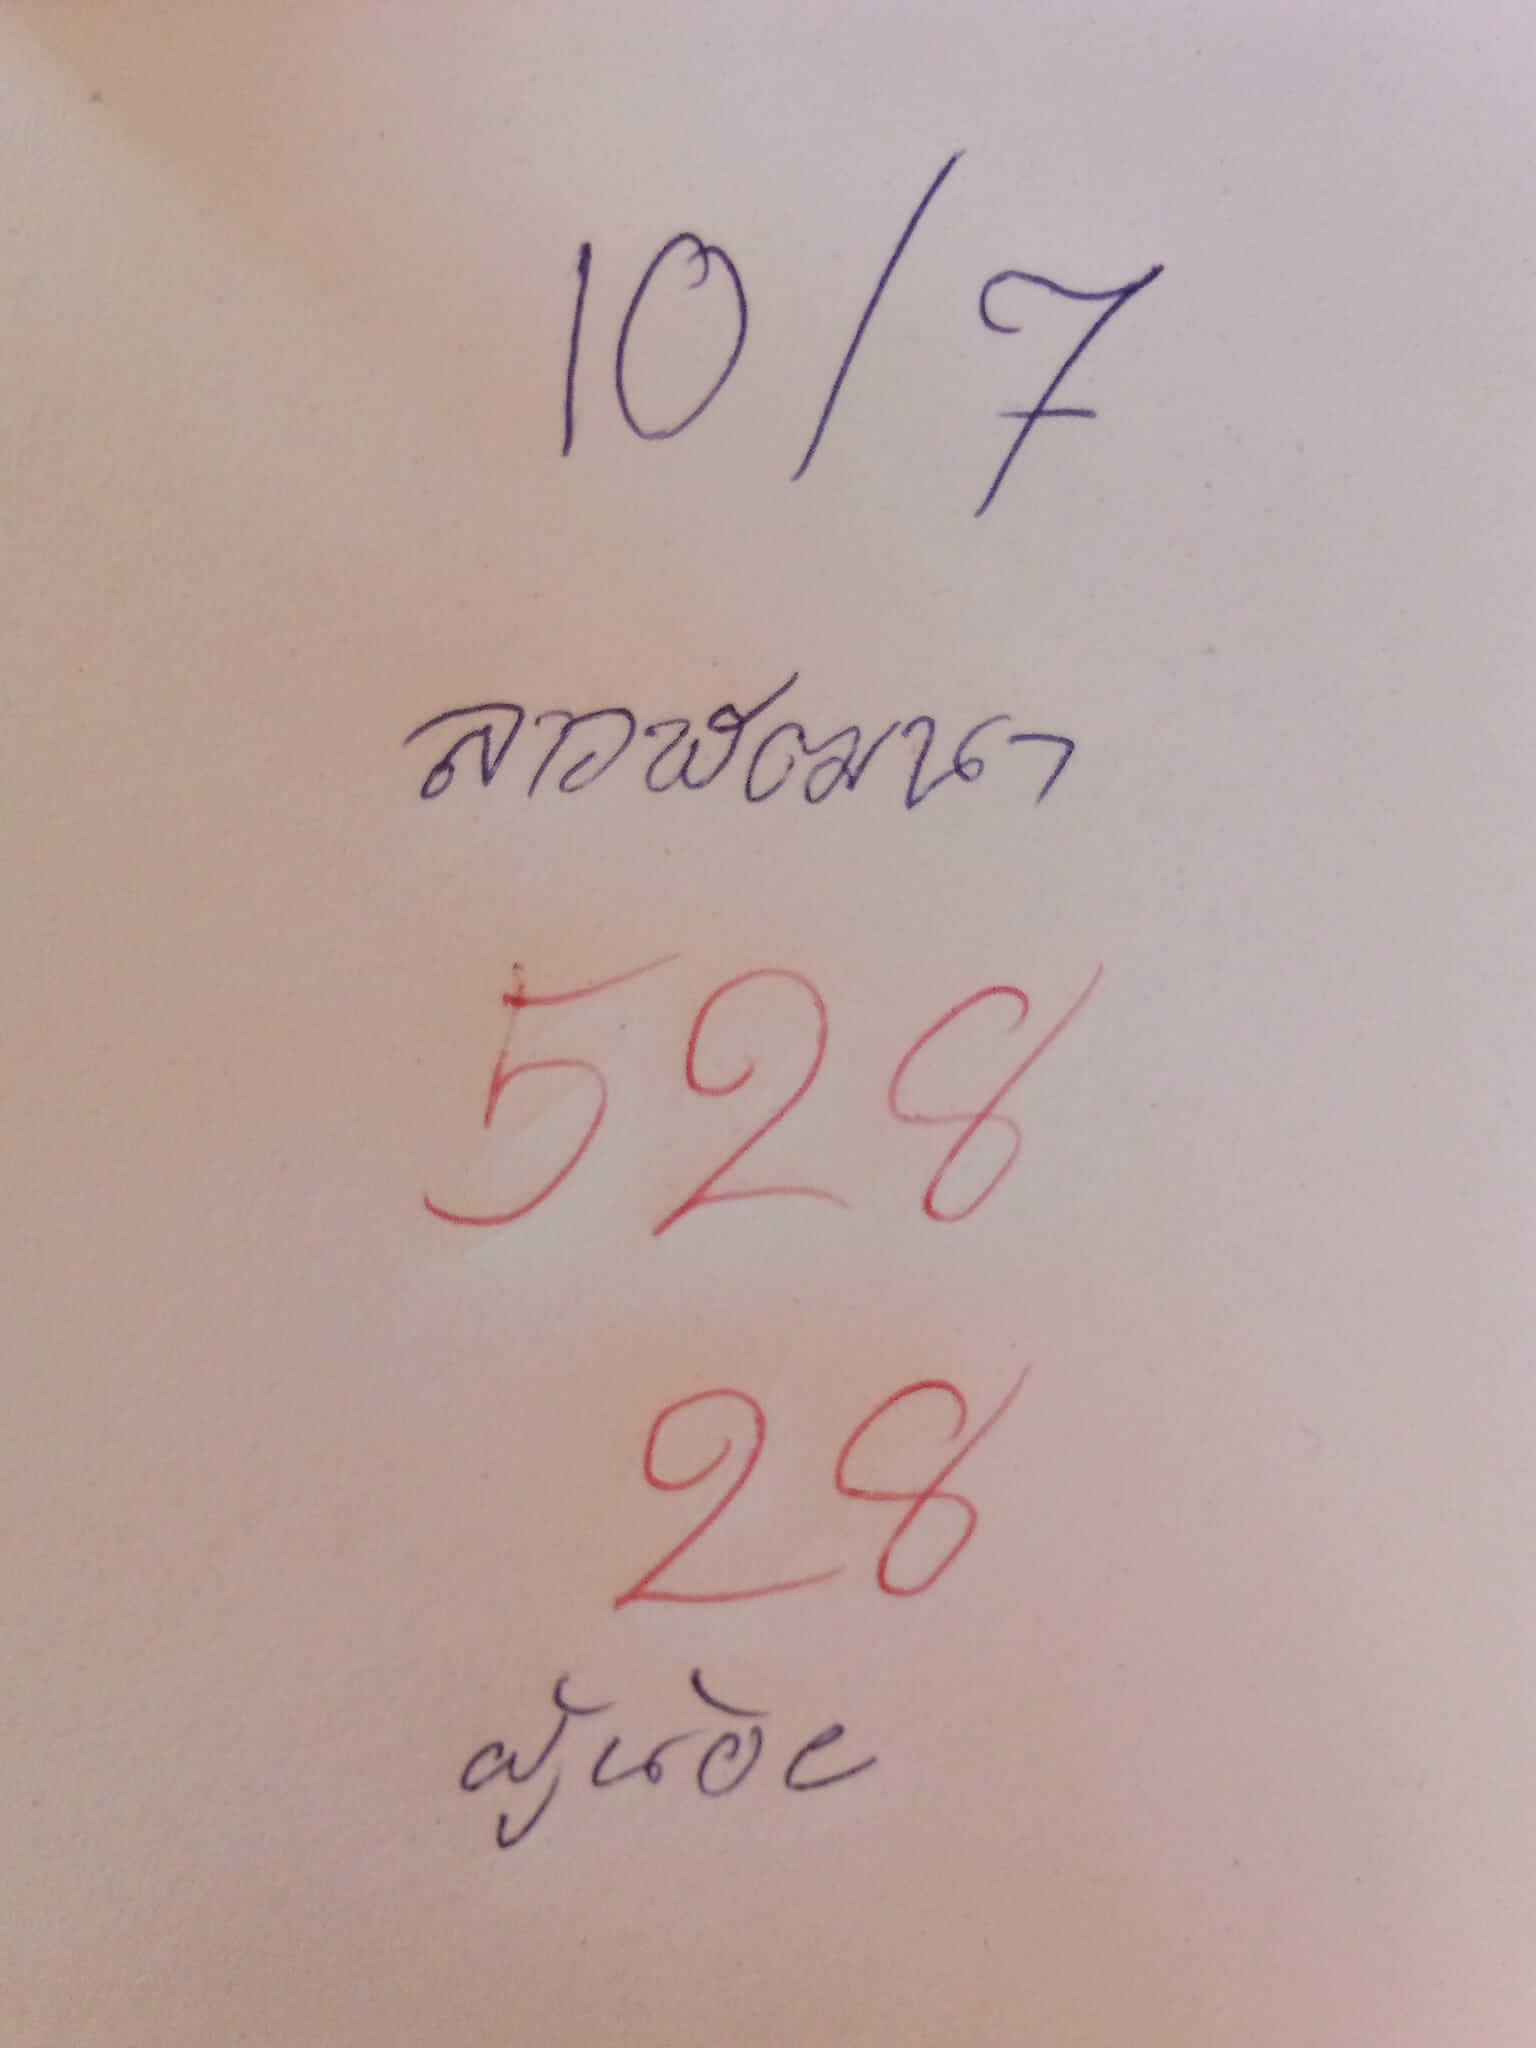 10/7
ลาวพัฒนา
528
28
ผู้น้อย